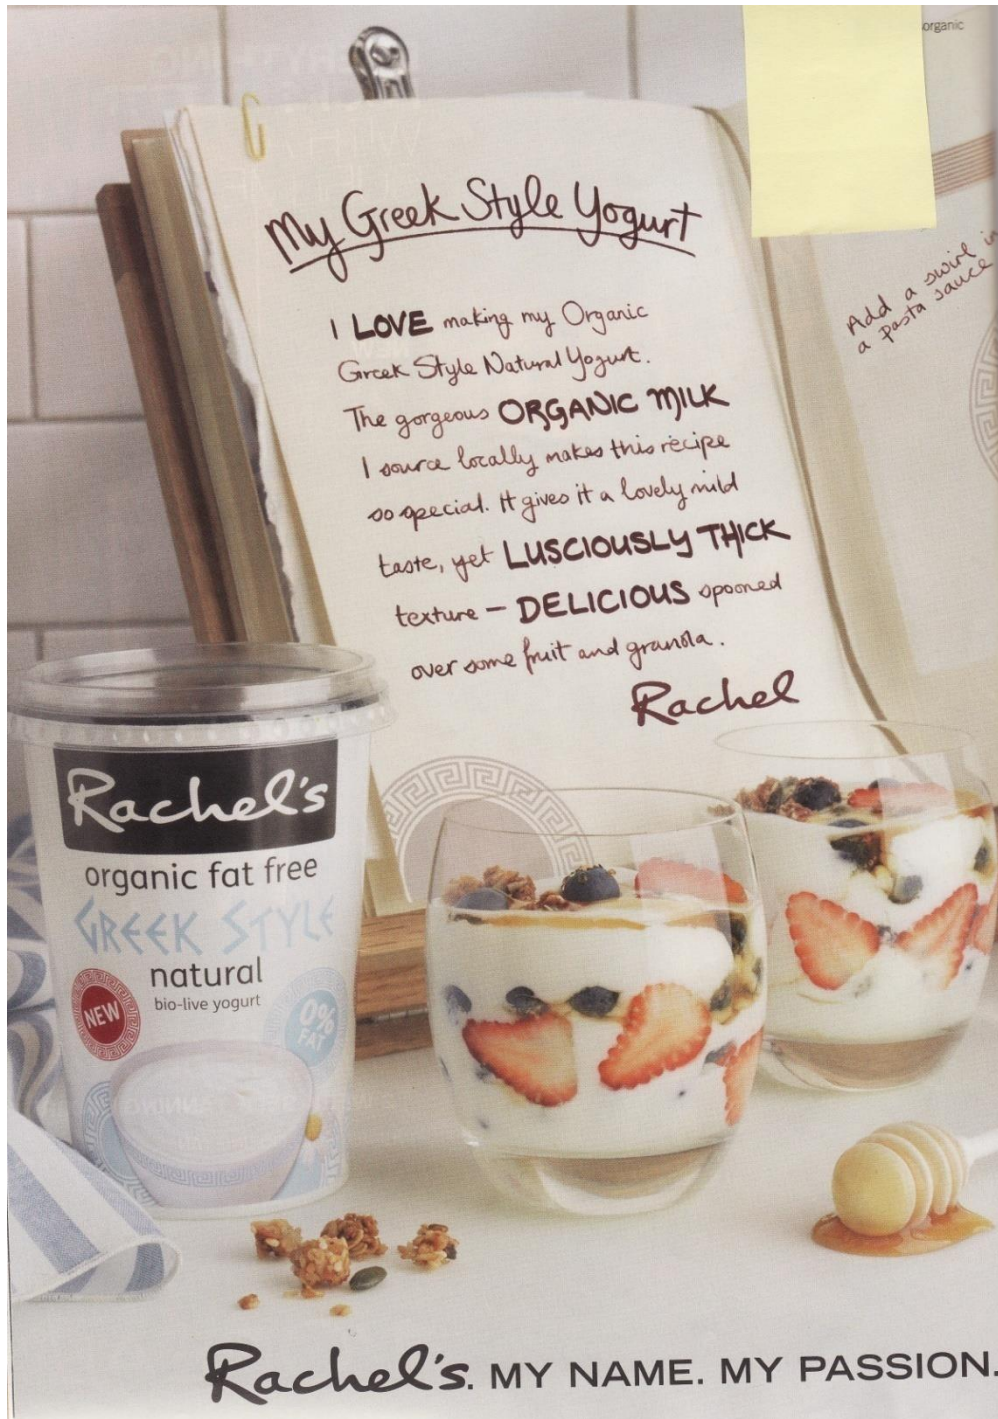 organic
My Greek Style Yogurt
I LOVE making my Organic
Greek Style Natural Yogurt.
The gorgeous ORGANIC MILK
I source locally makes this recipe
so special. It gives it a lovely mild
taste, yet LUSCIOUSLY THICK
texture – DELICIOUS spooned
over some fruit and granola.
Rachel
Add a swirl in
a pasta sauce
Rachel's
organic fat free
GREEK STYLE
natural
bio-live yogurt
NEW
0%
FAT
Rachel's. MY NAME. MY PASSION.